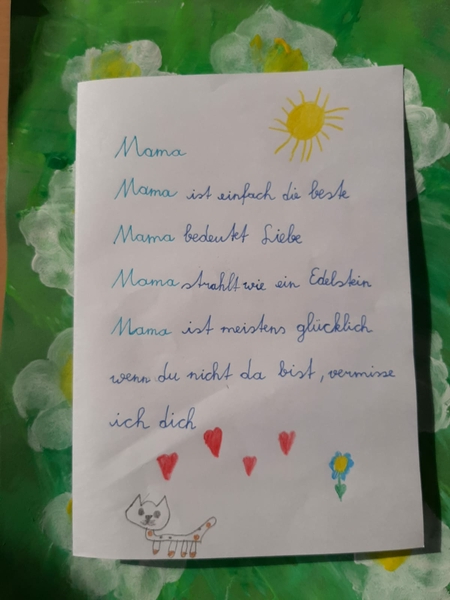 Mama
Mama ist einfach die beste
Mama bedeutet Liebe
Mama strahlt wie ein Edelstein
Mama ist meistens glücklich
wenn du nicht da bist, vermisse
ich dich